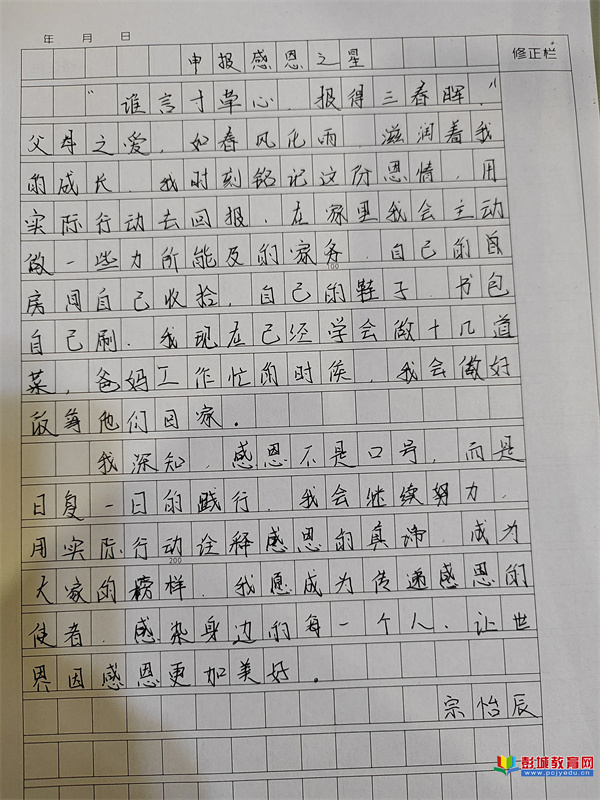 年 月 日
修正栏
申报感恩之星
“谁言寸草心，报得三春晖。”
父母之爱，如春风化雨，滋润着我
的成长，我时刻铭记这份恩情，用
实际行动去回报，在家里我会主动
做一些力所能及的家务，自己的
房间自己收拾，自己的鞋子、书包
100
自己刷。我现在已经学会做十几道
菜，爸妈工作忙的时候，我会做好
饭等他们回家。
我深知，感恩不是口号，而是
日复一日的践行，我会继续努力，
用实际行动诠释感恩的真谛，成为
200
大家的榜样，我愿成为传递感恩的
使者，感染身边的每一个人，让世
界因感恩更加美好。
宗怡辰
彭城教育网
www.pcjyedu.cn